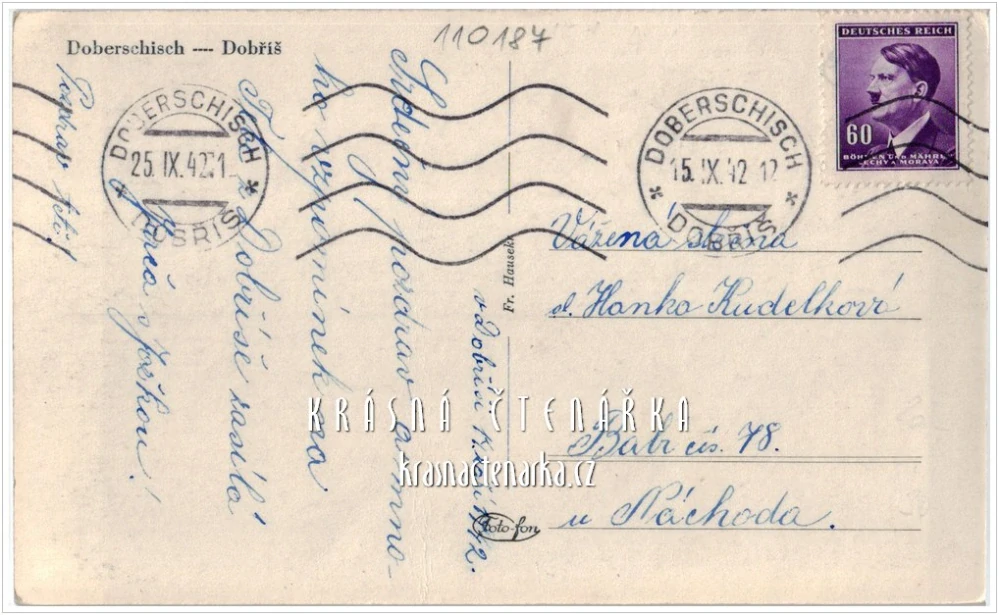 Doberschisch ---- Dobříš
110187
DEUTSCHES REICH
60
BÖHMEN UND MÄHREN
ČECHY A MORAVA
DOBERSCHISCH
25. IX. 42
DOBŘÍŠ
DOBERSCHISCH
15. IX. 42 12
DOBŘÍŠ
Srdečný pozdrav a mno-
ho vzpomínek na
z Dobříše zasílá
s Jožkou!
Pozdrav tetě!
v Dobříši
42.
Fr. Hausek
Foto-fon
Vážená slečna
sl. Hanka Kudelková
Babí čís. 78.
u Náchoda.
KRÁSNÁ ČTENÁŘKA
krasnactenarka.cz